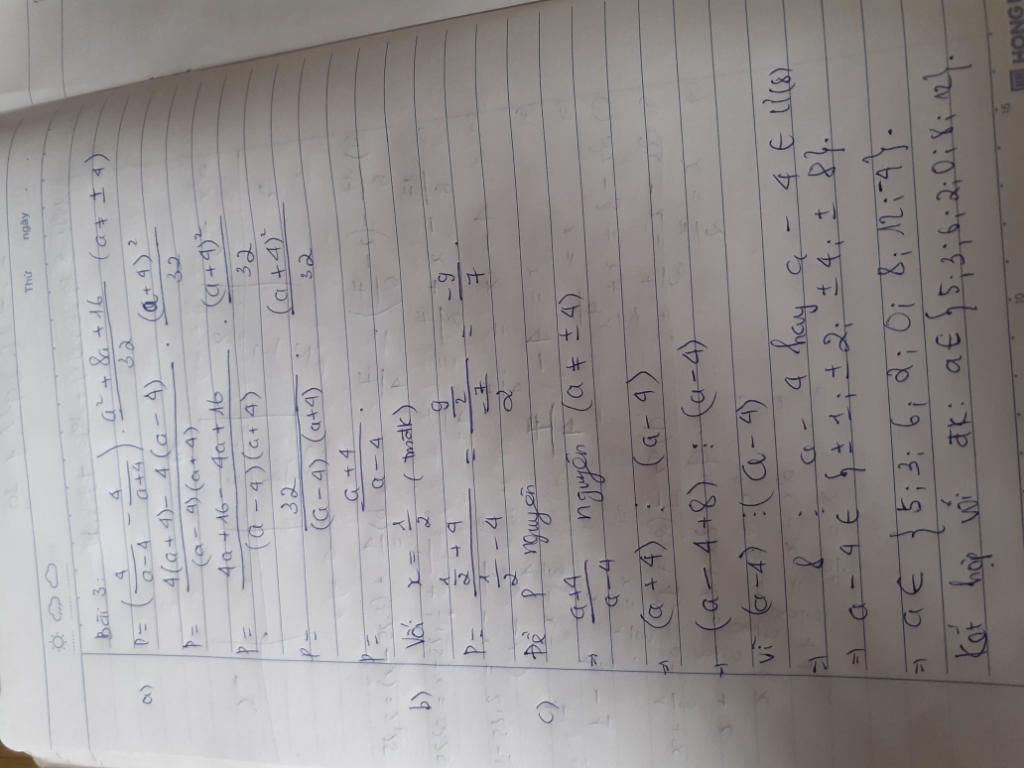 Thứ ngày
Bài 3:
a) P = (4/(a-4) - 4/(a+4)) · (a² + 8a + 16)/32 (a ≠ ± 4)
P = (4(a+4) - 4(a-4))/((a-4)(a+4)) · (a+4)²/32
P = (4a+16 - 4a+16)/((a-4)(a+4)) · (a+4)²/32
P = 32/((a-4)(a+4)) · (a+4)²/32
P = (a+4)/(a-4) .
b) Với x = 1/2 (tmđk)
P = (1/2 + 4)/(1/2 - 4) = (9/2)/(-7/2) = -9/7 .
c) Để P nguyên
=> (a+4)/(a-4) nguyên (a ≠ ± 4)
=> (a+4) ⋮ (a-4)
=> (a-4+8) ⋮ (a-4)
vì (a-4) ⋮ (a-4)
=> 8 ⋮ a-4 hay a-4 ∈ Ư(8)
=> a-4 ∈ {±1; ±2; ±4; ±8}.
=> a ∈ {5; 3; 6; 2; 0; 8; 12; -4}.
Kết hợp với đk: a ∈ {5; 3; 6; 2; 0; 8; 12}.
15
10